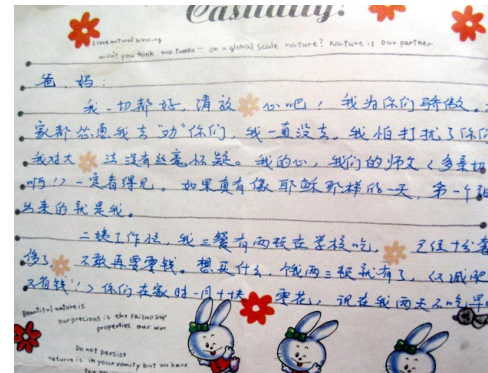 Casually!
I love natural blessing
won't you think two foods — on a global scale nature? Nature is our partner
爸、妈:
我一切都好,请放心吧!我为你们骄傲。
家都怂恿我去“劝”你们,我一直没去。我怕打扰了你们
我对大法没有丝毫怀疑。我的心,我们的师父(多亲切
啊!)一定看得见。如果真有像耶稣那样的一天,第一个
出来的就是我。
二姨工作忙,我三餐有两顿在学校吃,已经十分
够了。不敢再要零钱。想买什么,饿两三顿就有了,(又减肥
又省钱!)你们在家时一月十块零花,现在我两天不吃早
Beautiful nature is
our precious is the friendship
properties our war
Do not persist
nature is in your vanity but we have